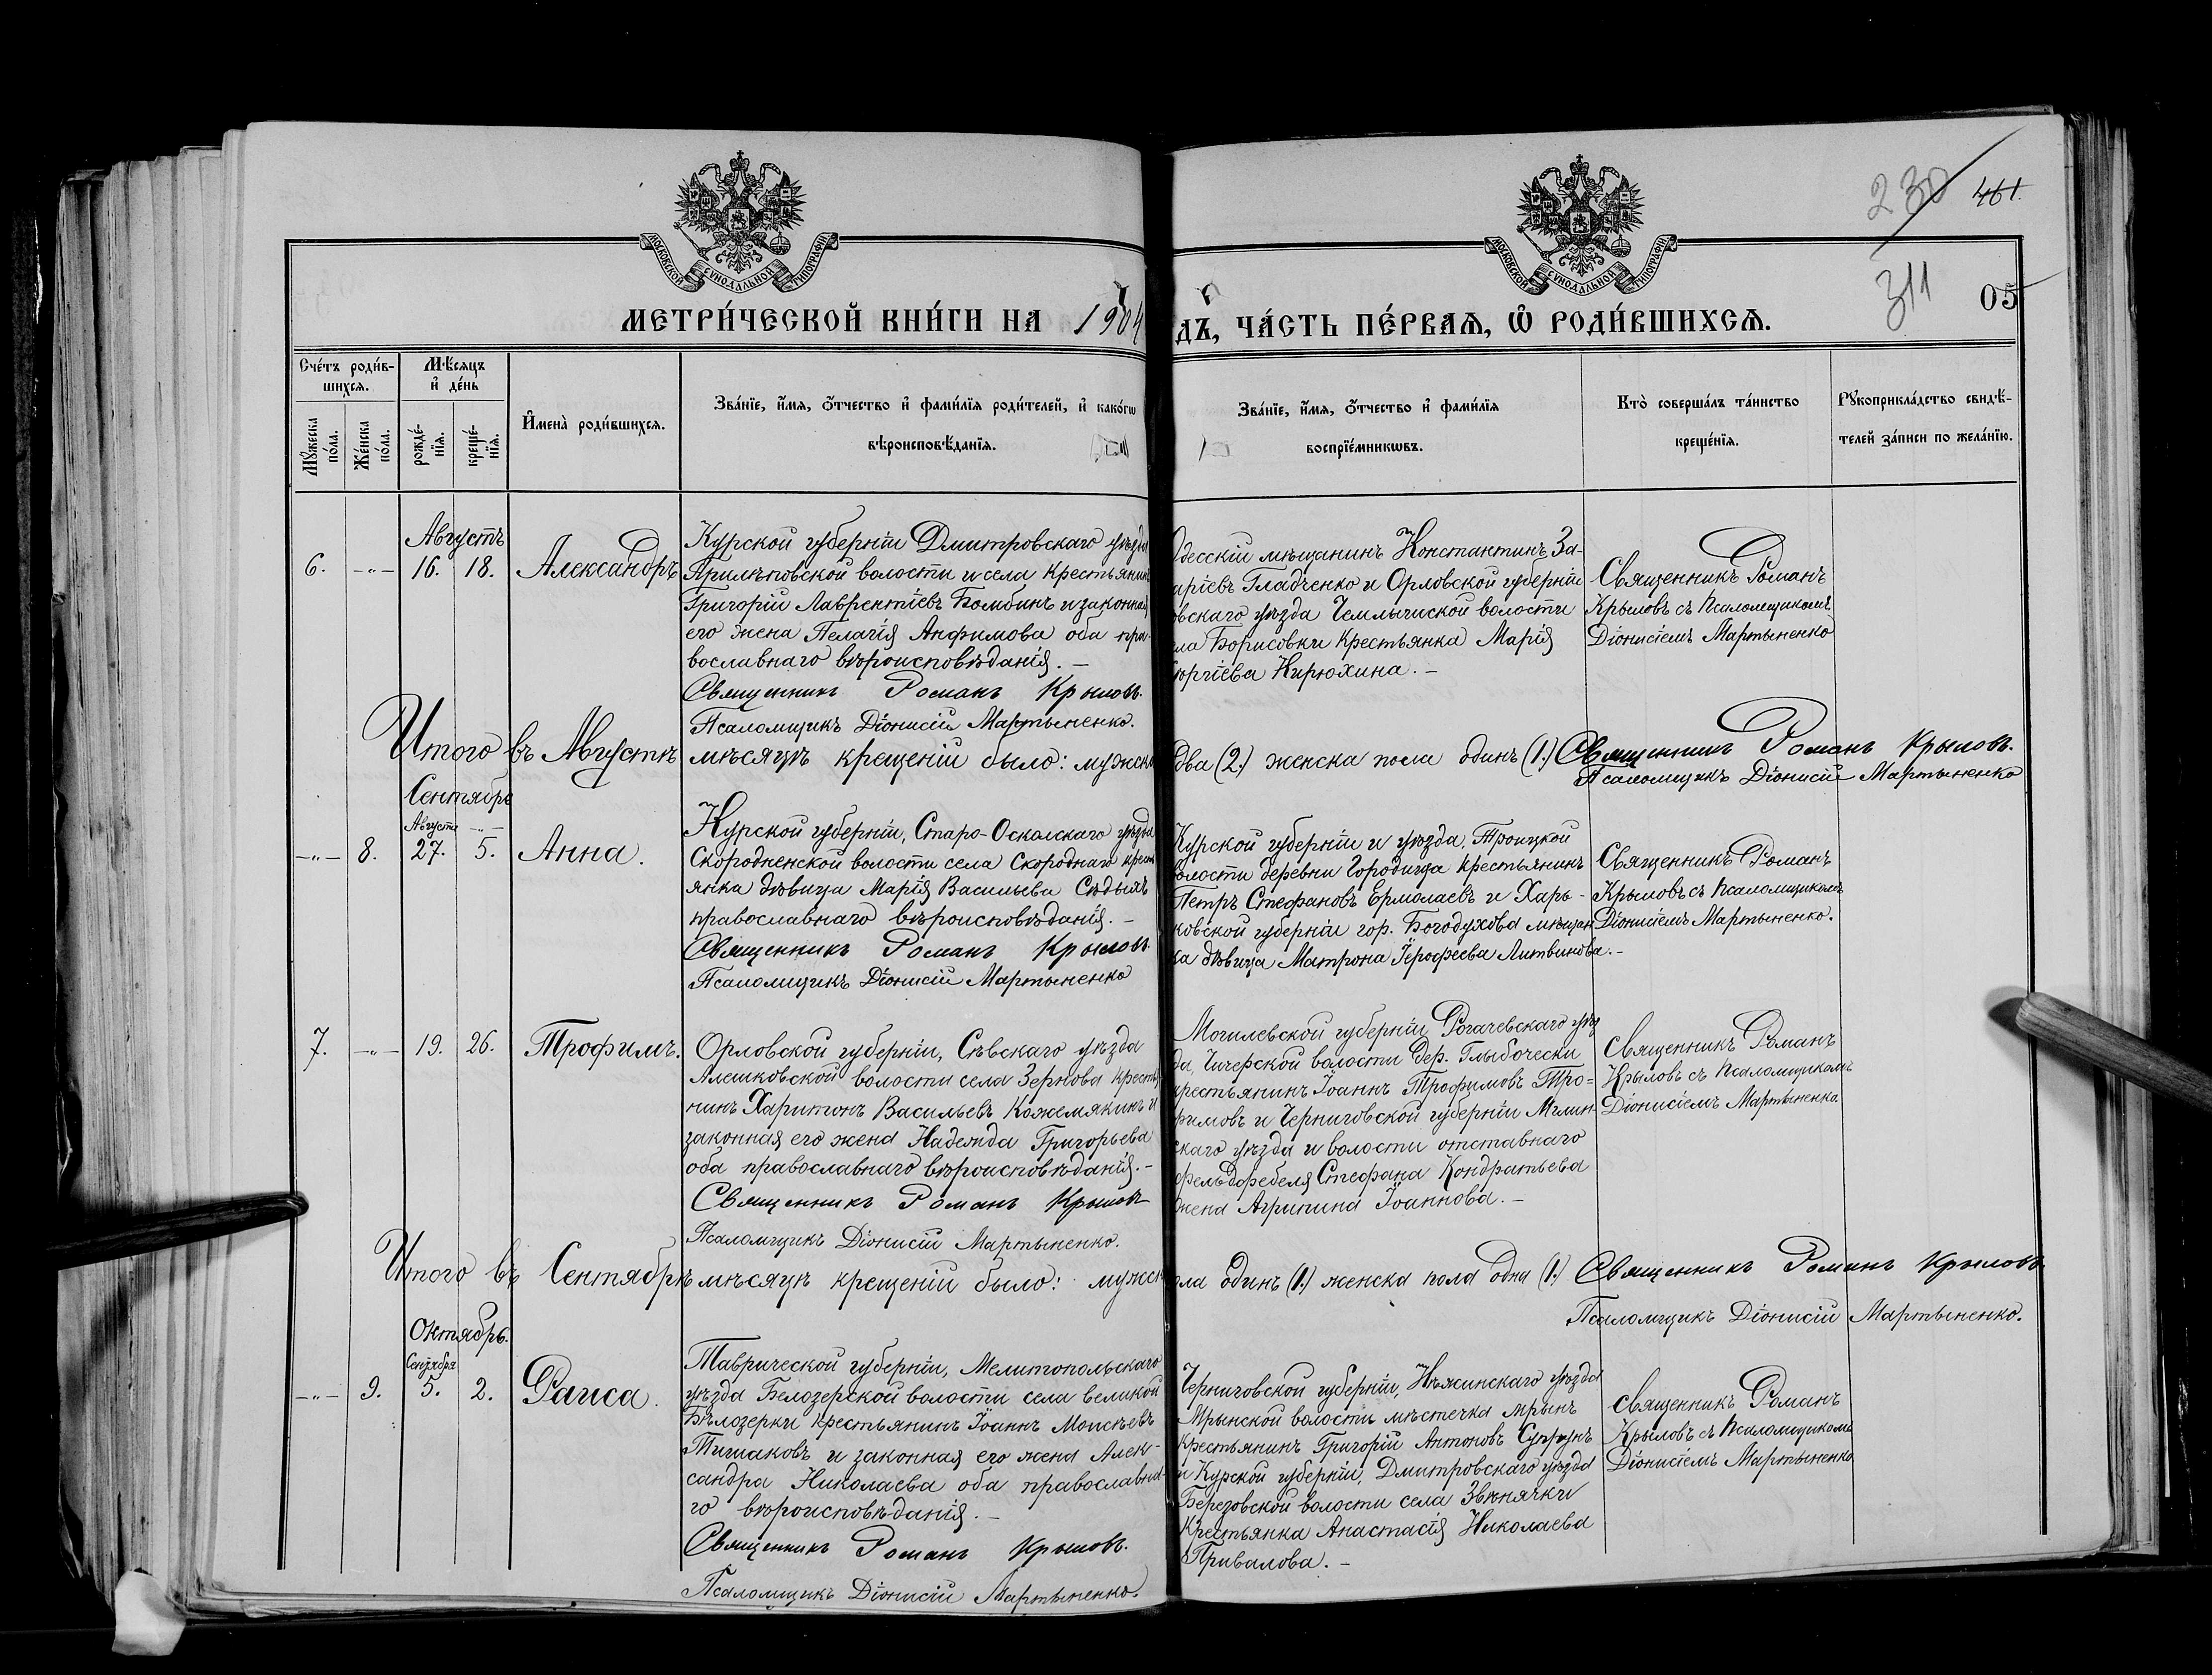 230 461.
311
05
МОСКОВСКОЙ СѴНОДАЛЬНОЙ ТИПОГРАФІИ
МОСКОВСКОЙ СѴНОДАЛЬНОЙ ТИПОГРАФІИ
МЕТРИ́ЧЕСКОЙ КНИ́ГИ НА 1904
ДЪ, ЧА́СТЬ ПЕ́РВАѦ, Ѡ РОДИ́ВШИХСѦ.
Сче́тъ роди́в-
шихсѧ.
Мꙋ́жеска по́ла.
Же́нска по́ла.
Мѣ́сяцъ
и҆ де́нь
рожде́-
нїѧ.
креще́-
нїѧ.
И҆мена̀ роди́вшихсѧ.
Зва́нїе, и҆́мѧ, ѻ҆́тчество и҆ фами́лїѧ роди́телей, и҆ како́гѡ
вѣроисповѣ́данїѧ.
Зва́нїе, и҆́мѧ, ѻ҆́тчество и҆ фами́лїѧ
воспрїе́мникѡвъ.
Кто̀ соверша́лъ та́инство
креще́нїѧ.
Рꙋкоприкла́дство свидѣ́-
телей за́писи по жела́нїю.
Августъ
6. -„- 16. 18. Александръ
Курской губерніи Дмитровскаго уѣзда
Прилѣповской волости и села крестьянинъ
Григорій Лаврентіевъ Бомбинъ и законная
его жена Пелагія Анфимова оба пра-
вославнаго вѣроисповѣданія. —
Священникъ Романъ Крыловъ.
Псаломщикъ Діонисій Мартыненко.
Одесскій мѣщанинъ Константинъ За-
аріевъ Гладченко и Орловской губерніи
вскаго уѣзда Чемлыжской волости
ла Борисовки крестьянка Марія
оргіева Кирюхина. —
Священникъ Романъ
Крыловъ съ Псаломщикомъ
Діонисіемъ Мартыненко
Итого въ Августѣ мѣсяцѣ крещеній было: мужска
два (2.) женска пола одинъ (1.) Священникъ Романъ Крыловъ.
Псаломщикъ Діонисій Мартыненко
Сентябрь
Августа -„-
-„- 8. 27. 5. Анна.
Курской губерніи, Старо-Оскалскаго уѣзда
Скородненской волости села Скороднаго крестья
янка дѣвица Марія Васильева Сѣдыхъ
православнаго вѣроисповѣданія. —
Священникъ Романъ Крыловъ
Псаломщикъ Діонисій Мартыненко
Курской губерніи и уѣзда, Троицкой
волости деревни Городища крестьянинъ
Петръ Стефановъ Ермолаевъ и Харь-
ковской губерніи гор. Богодухова мѣщан
ка дѣвица Матрона Іерофеева Литвинова. —
Священникъ Романъ
Крыловъ съ Псаломщикомъ
Діонисіемъ Мартыненко.
7. -„- 19. 26. Трофимъ.
Орловской губерніи, Сѣвскаго уѣзда
Алешковской волости села Зернова кресть
нинъ Харитонъ Васильевъ Кожемякинъ и
законная его жена Надежда Григорьева
оба православнаго вѣроисповѣданія. —
Священникъ Романъ Крыловъ
Псаломщикъ Діонисій Мартыненко.
Могилевской губерніи Рогачевскаго уѣз
да, Чичерской волости дер. Глыбочески
крестьянинъ Іоаннъ Трофимовъ Тро=
фимовъ и Черниговской губерніи Мглин
скаго уѣзда и волости отставнаго
фельдфебеля Стефана Кондратьева
жена Агрипина Іоаннова. —
Священникъ Романъ
Крыловъ съ Псаломщикомъ
Діонисіемъ Мартыненко.
Итого въ Сентябрѣ мѣсяцѣ крещеній было: мужск
ола одинъ (1.) женска пола одна (1.) Священникъ Романъ Крыловъ
Псаломщикъ Діонисій Мартыненко.
Октябрь.
Сентября
-„- 9. 5. 2. Раиса.
Таврической губерніи, Мелитопольскаго
уѣзда Белозерской волости села Великой
Бѣлозерки крестьянинъ Іоаннъ Моисѣевъ
Тишаковъ и законная его жена Алек-
сандра Николаева оба православна-
го вѣроисповѣданія. —
Священникъ Романъ Крыловъ.
Псаломщикъ Діонисій Мартыненко.
Черниговской губерніи, Нѣжинскаго уѣзда
Мрынской волости мѣстечка Мрынъ
крестьянинъ Григорій Антоновъ Супрунъ
и Курской губерніи, Дмитровскаго уѣзда
Березовской волости села Звенячки
крестьянка Анастасія Николаева
Привалова. —
Священникъ Романъ
Крыловъ съ Псаломщикомъ
Діонисіемъ Мартыненко